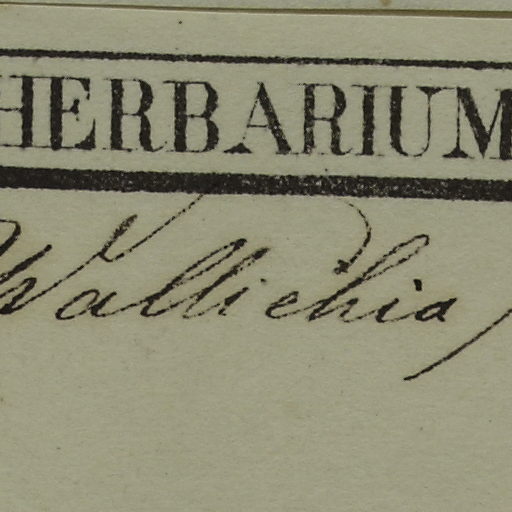 HERBARIUM
Wallichia,